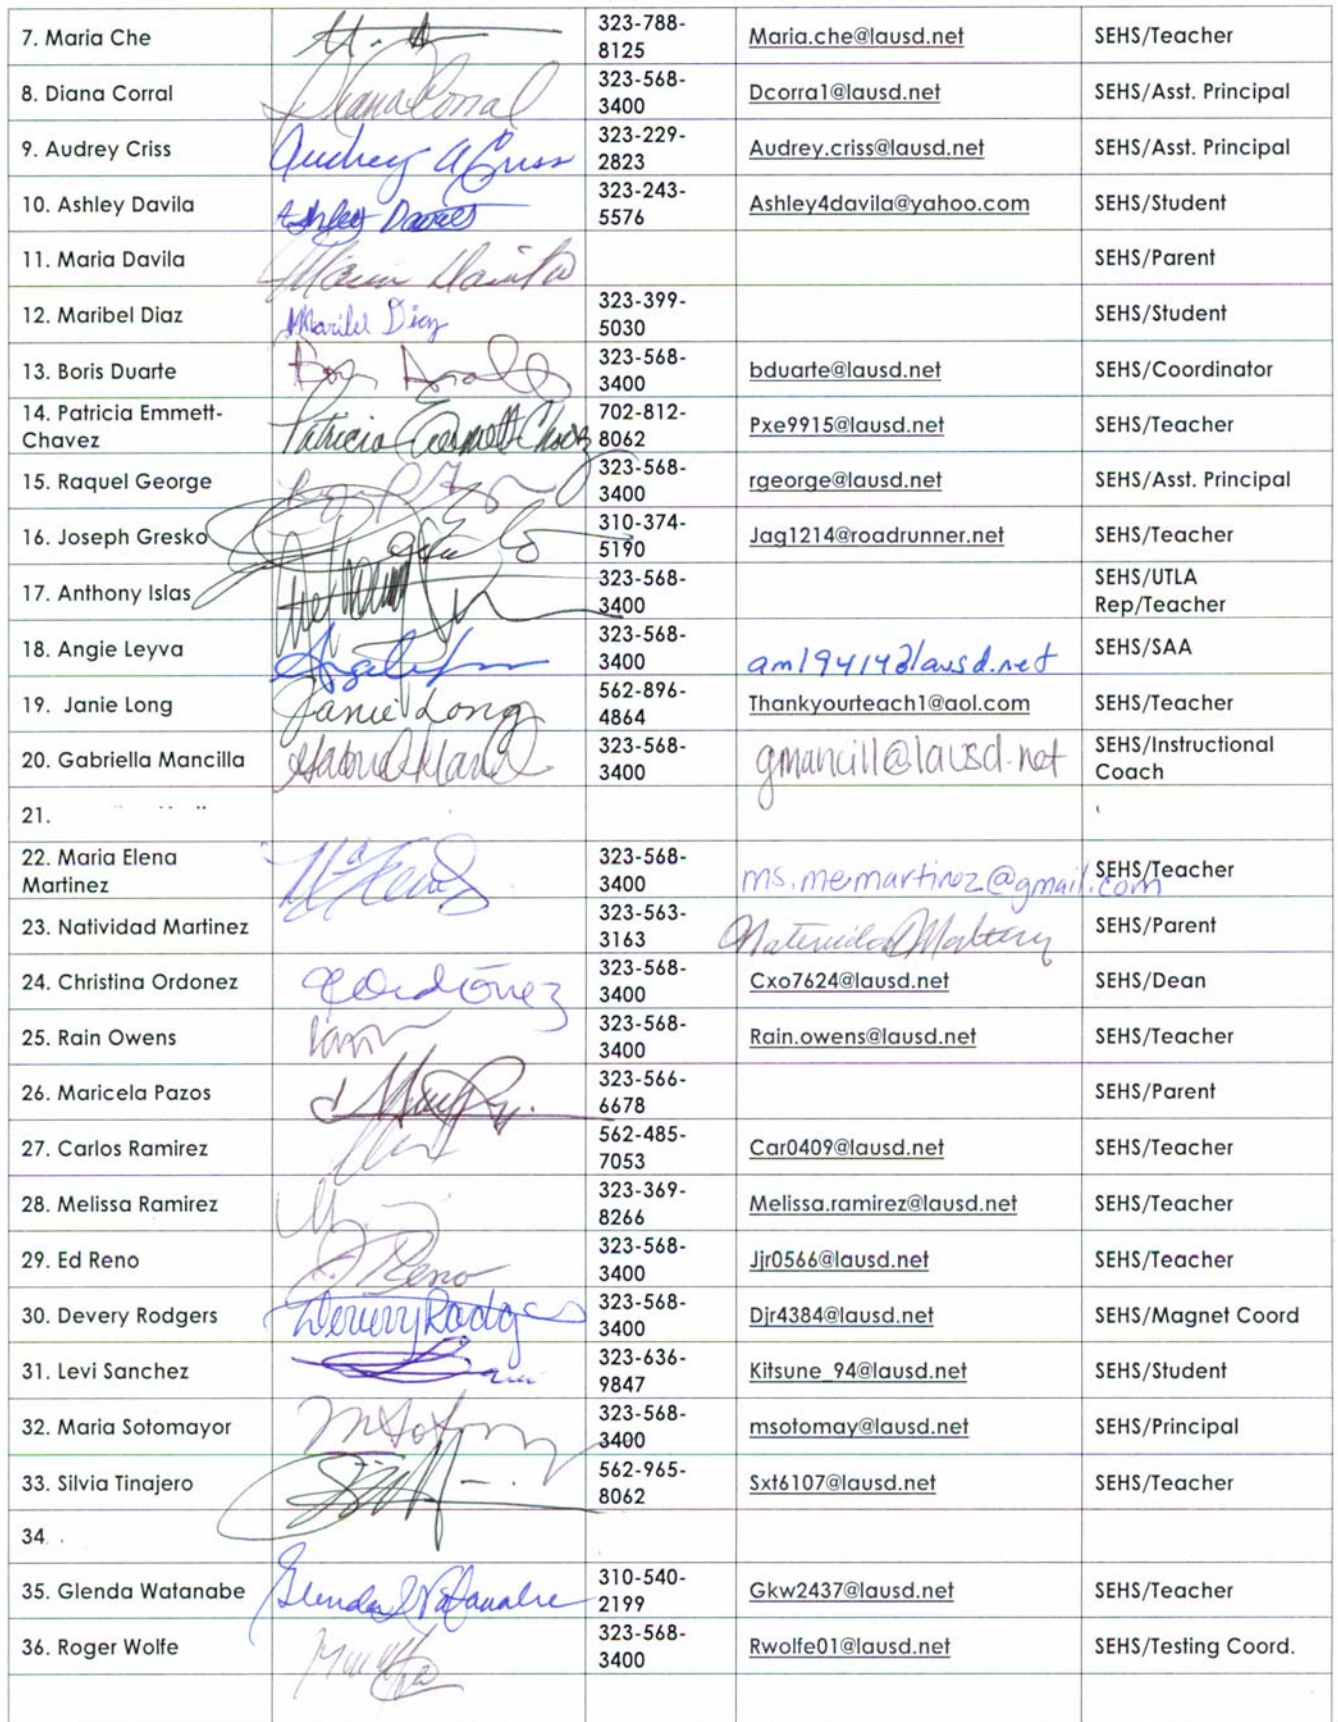 7. Maria Che
323-788-
8125
Maria.che@lausd.net
SEHS/Teacher
8. Diana Corral
Diana Corral
323-568-
3400
Dcorra1@lausd.net
SEHS/Asst. Principal
9. Audrey Criss
Audrey A Criss
323-229-
2823
Audrey.criss@lausd.net
SEHS/Asst. Principal
10. Ashley Davila
Ashley Davila
323-243-
5576
Ashley4davila@yahoo.com
SEHS/Student
11. Maria Davila
Maria Davila
SEHS/Parent
12. Maribel Diaz
Maribel Diaz
323-399-
5030
SEHS/Student
13. Boris Duarte
323-568-
3400
bduarte@lausd.net
SEHS/Coordinator
14. Patricia Emmett-
Chavez
Patricia Emmett Chavez
702-812-
8062
Pxe9915@lausd.net
SEHS/Teacher
15. Raquel George
323-568-
3400
rgeorge@lausd.net
SEHS/Asst. Principal
16. Joseph Gresko
310-374-
5190
Jag1214@roadrunner.net
SEHS/Teacher
17. Anthony Islas
323-568-
3400
SEHS/UTLA
Rep/Teacher
18. Angie Leyva
323-568-
3400
am19414@lausd.net
SEHS/SAA
19. Janie Long
Janie Long
562-896-
4864
Thankyourteach1@aol.com
SEHS/Teacher
20. Gabriella Mancilla
323-568-
3400
gmancill@lausd.net
SEHS/Instructional
Coach
21.
22. Maria Elena
Martinez
323-568-
3400
ms.memartinez@gmail.com
SEHS/Teacher
23. Natividad Martinez
323-563-
3163
Natividad Martinez
SEHS/Parent
24. Christina Ordonez
COrdónez
323-568-
3400
Cxo7624@lausd.net
SEHS/Dean
25. Rain Owens
323-568-
3400
Rain.owens@lausd.net
SEHS/Teacher
26. Maricela Pazos
323-566-
6678
SEHS/Parent
27. Carlos Ramirez
562-485-
7053
Car0409@lausd.net
SEHS/Teacher
28. Melissa Ramirez
323-369-
8266
Melissa.ramirez@lausd.net
SEHS/Teacher
29. Ed Reno
Reno
323-568-
3400
Jjr0566@lausd.net
SEHS/Teacher
30. Devery Rodgers
Devery Rodgers
323-568-
3400
Djr4384@lausd.net
SEHS/Magnet Coord
31. Levi Sanchez
323-636-
9847
Kitsune_94@lausd.net
SEHS/Student
32. Maria Sotomayor
323-568-
3400
msotomay@lausd.net
SEHS/Principal
33. Silvia Tinajero
562-965-
8062
Sxt6107@lausd.net
SEHS/Teacher
34.
35. Glenda Watanabe
Glenda Watanabe
310-540-
2199
Gkw2437@lausd.net
SEHS/Teacher
36. Roger Wolfe
323-568-
3400
Rwolfe01@lausd.net
SEHS/Testing Coord.